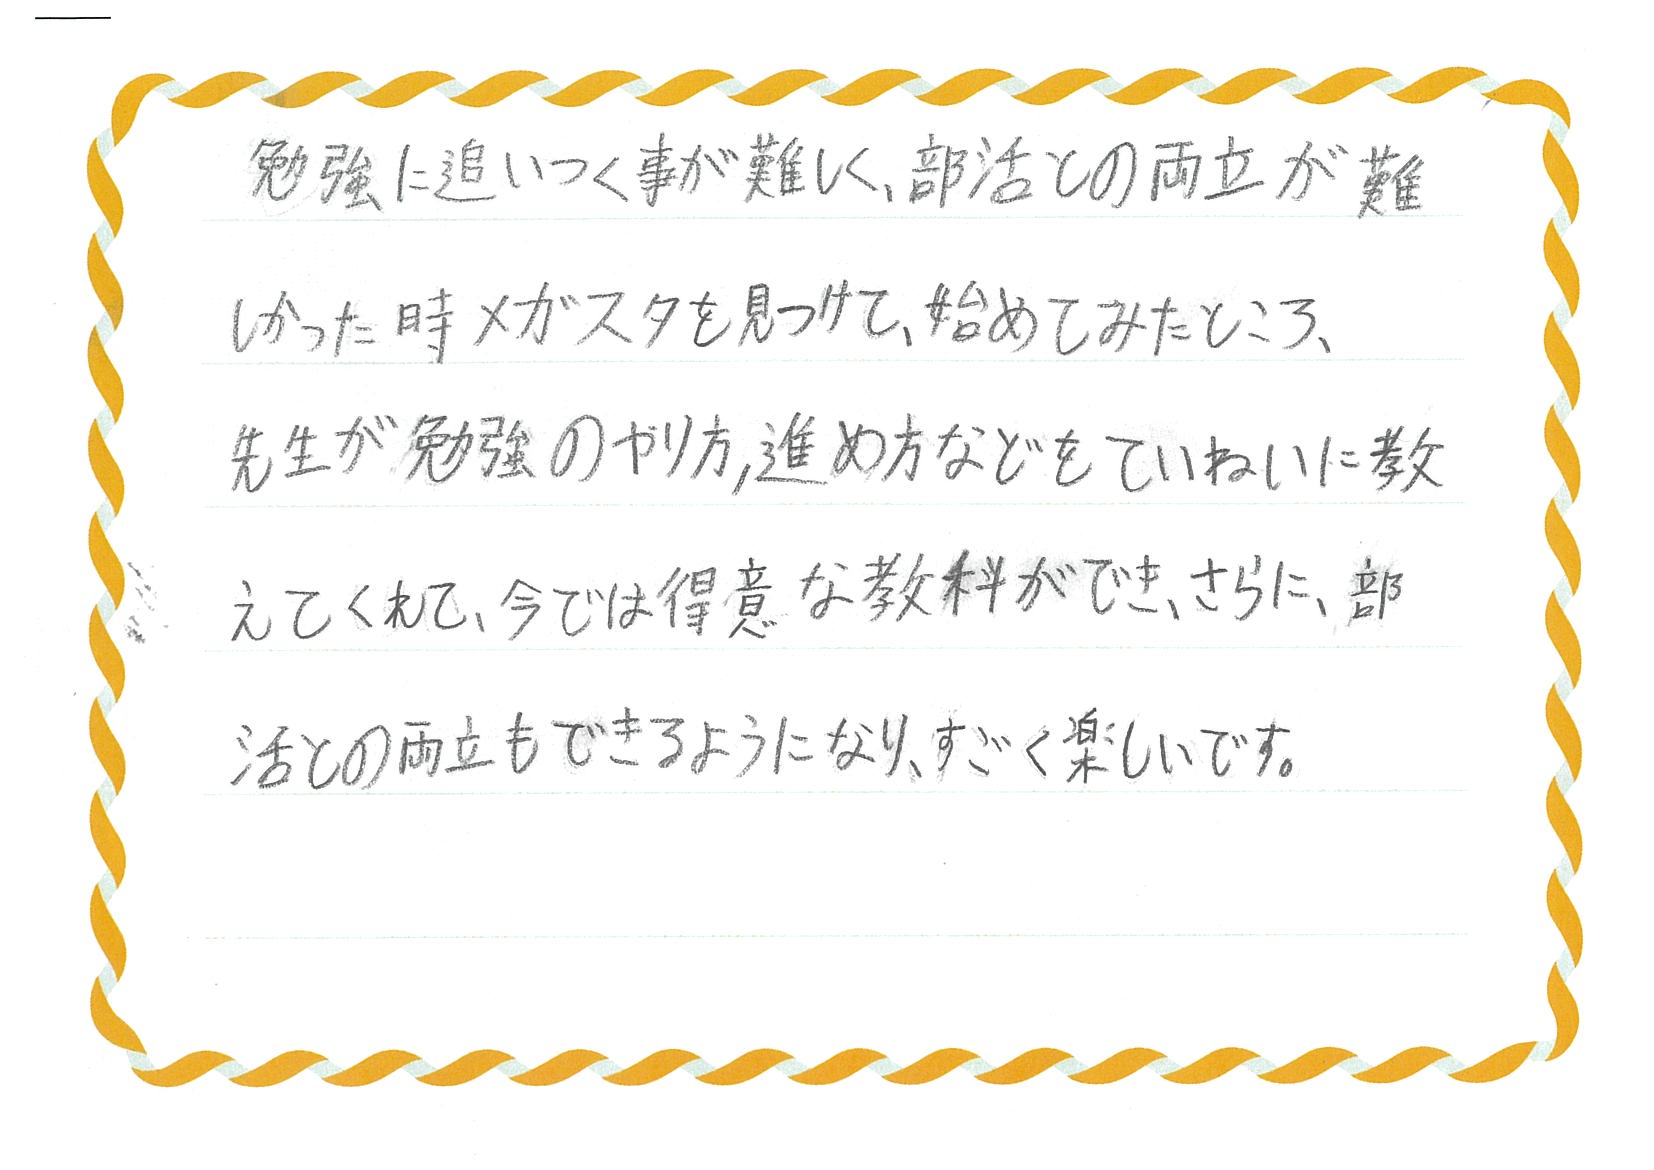 勉強に追いつく事が難しく、部活との両立が難
しかった時メガスタを見つけて、始めてみたところ、
先生が勉強のやり方,進め方などをていねいに教
えてくれて、今では得意な教科ができ、さらに、部
活との両立もできるようになり、すごく楽しいです。